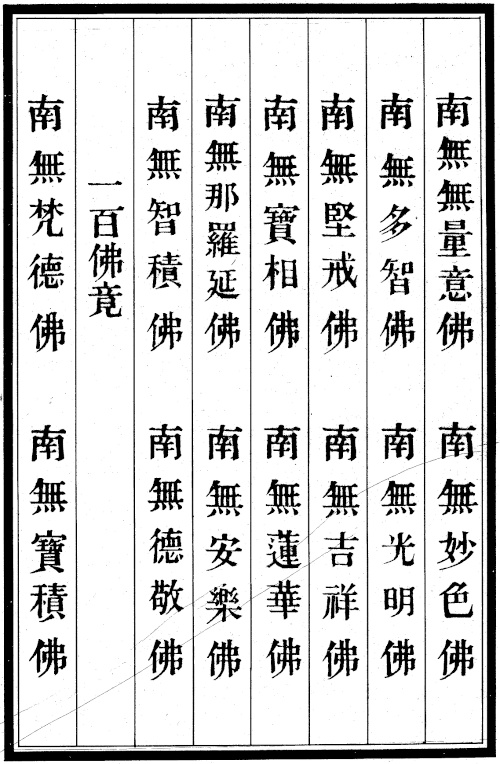 南無無量意佛　南無妙色佛
南無多智佛　南無光明佛
南無堅戒佛　南無吉祥佛
南無寶相佛　南無蓮華佛
南無那羅延佛　南無安樂佛
南無智積佛　南無德敬佛
一百佛竟
南無梵德佛　南無寶積佛